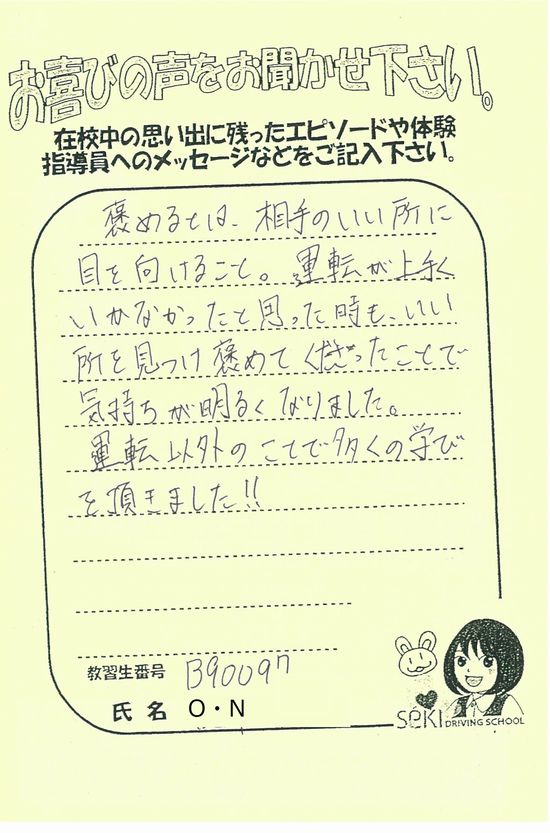 お喜びの声をお聞かせ下さい。
在校中の思い出に残ったエピソードや体験
指導員へのメッセージなどをご記入下さい。
褒めるとは、相手のいい所に
目を向けること。運転が上手く
いかなかったと思った時も、いい
所を見つけ褒めてくださったことで
気持ちが明るくなりました。
運転以外のことで多くの学び
を頂きました!!
教習生番号 B90097
氏名 O・N
SEKI DRIVING SCHOOL